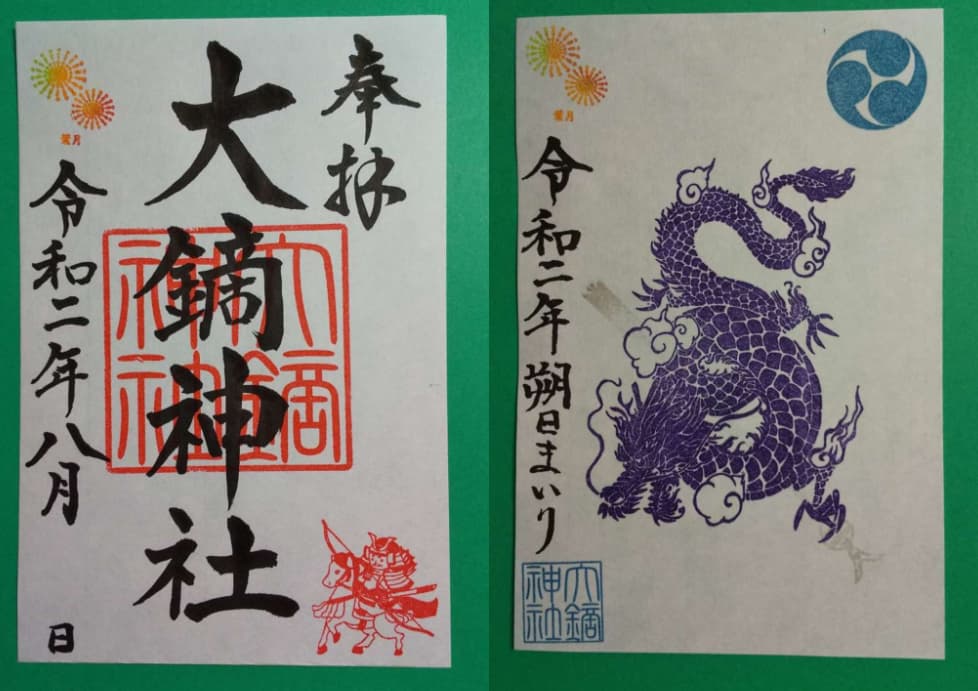 奉拝
大鏑神社
大鏑神社
葉月
令和二年八月
日
葉月
令和二年朔日まいり
大鏑神社